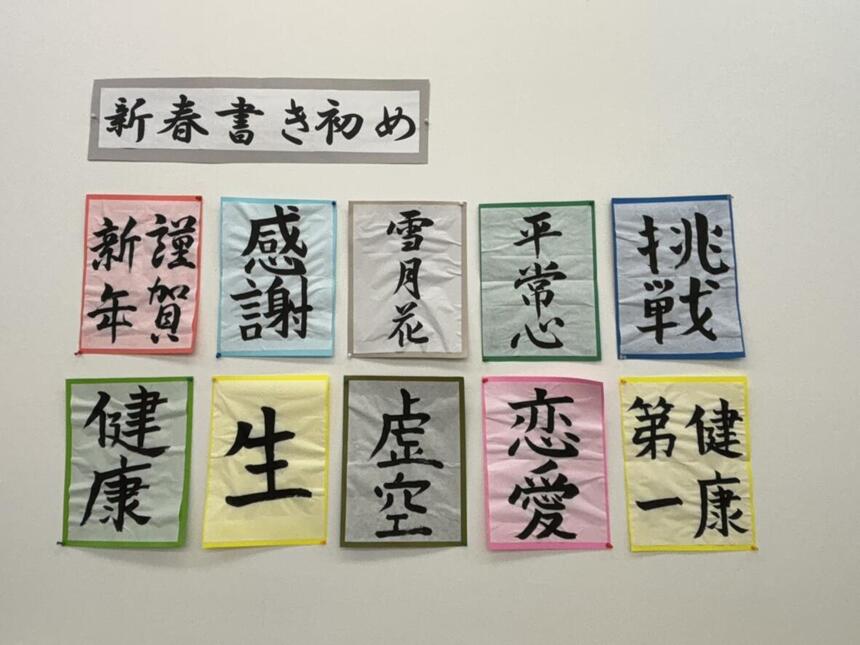 新春書き初め
謹賀
新年
感謝
雪月花
平常心
挑戦
健康
生
虚空
恋愛
健康
第一